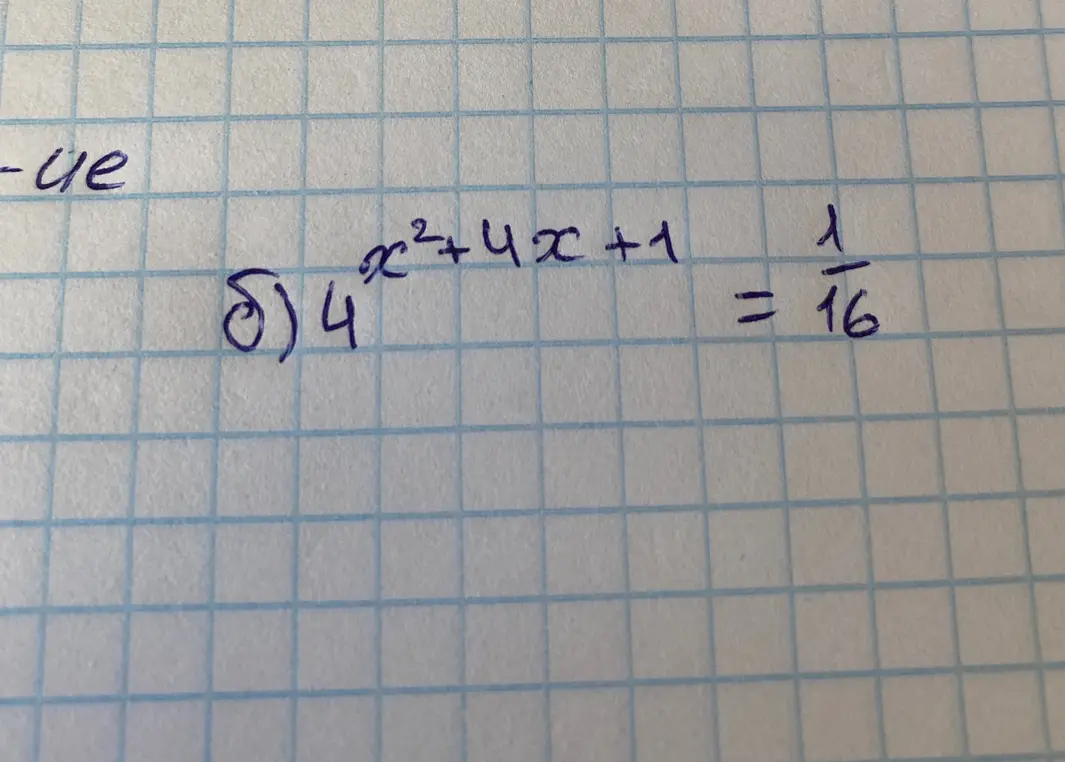 -ие
б) 4^{x²+4x+1} = 1/16